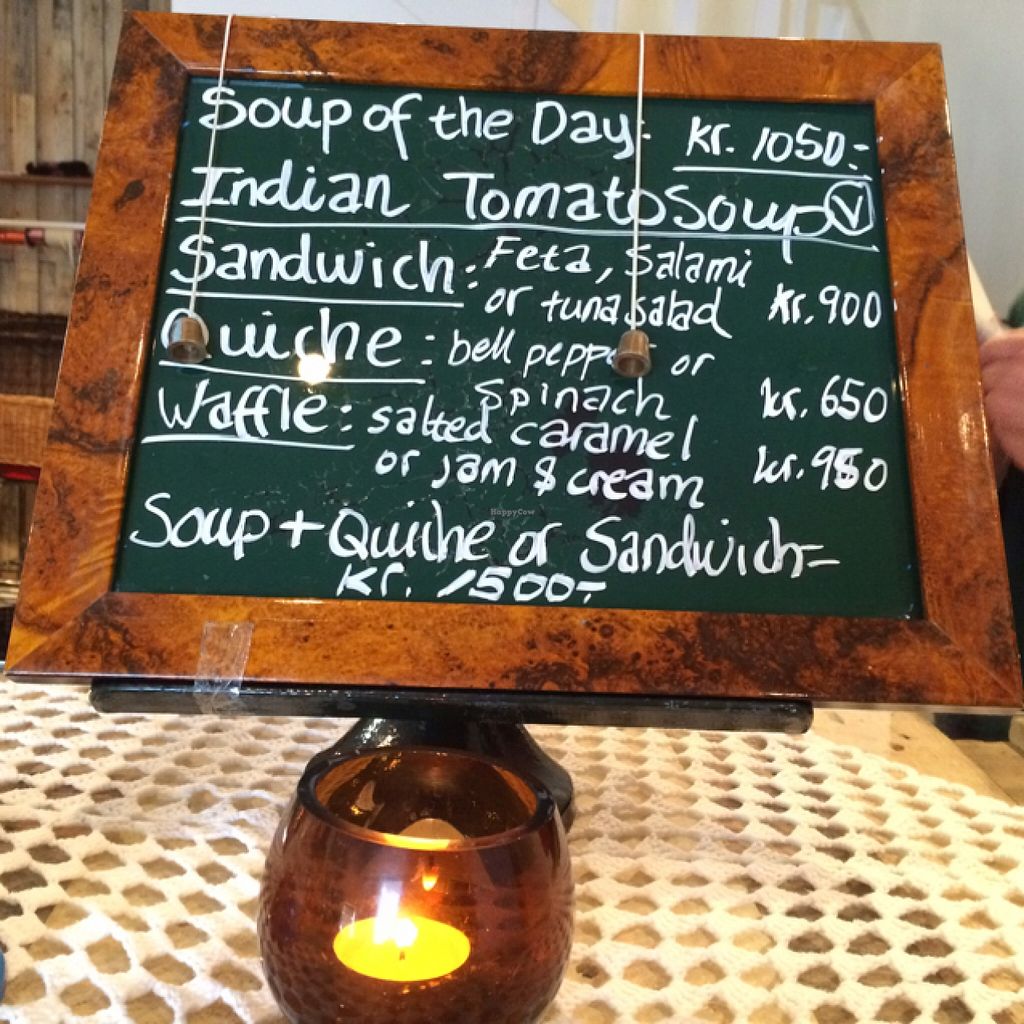 Soup of the Day: kr. 1050:-
Indian Tomato Soup Ⓥ
Sandwich: Feta, Salami
or tuna salad kr. 900
Quiche: bell pepper or
spinach kr. 650
Waffle: salted caramel
or jam & cream kr. 950
HappyCow
Soup + Quiche or Sandwich-
kr. 1500:-